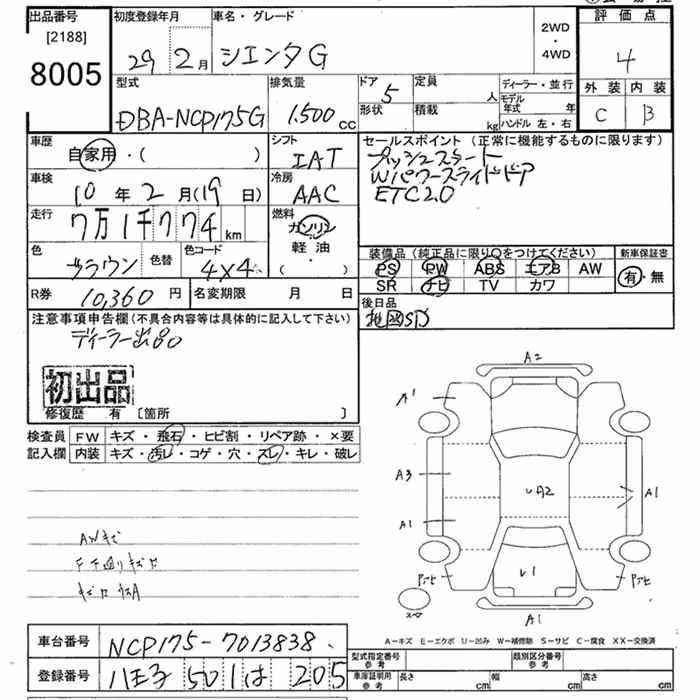 出品番号 初度登録年月 車名・グレード 2WD・4WD 評価点
[2188]
8005 29 2月 シエンタG 4
型式 排気量 ドア 5 定員 人 ディーラー・並行 外装 内装
形状 積載 kg モデル年式 年 C B
DBA-NCP175G 1.500cc ハンドル 左・右
車歴 自家用・( ) シフト IAT セールスポイント (正常に機能するものに限ります)
プッシュスタート
Wパワースライドドア
ETC2.0
車検 10年2月(19日) 冷房 AAC
走行 7万1千774km 燃料 ガソリン・軽油・( )
色 ブラウン 色替 色コード 4X4
装備品 (純正品に限り○をつけてください) 新車保証書
PS PW ABS エアB AW 有・無
SR ナビ TV カワ
R券 10,360円 名変期限 月 日
後日品
地図SD
注意事項申告欄(不具合内容等は具体的に記入して下さい)
ディーラー出品
初出品
修復歴 有 [箇所 ]
検査員 FW キズ・飛石・ヒビ割・リペア跡・×要
記入欄 内装 キズ・汚レ・コゲ・穴・スレ・キレ・破レ
A2
A1
A3
UA2
A1
A1
U1
A1
AWキズ
A－キズ E－エクボ U－凹み W－補修跡 S－サビ C－腐食 XX－交換済
車台番号 NCP175-7013838
登録番号 八王子 501 は 205
型式指定番号 参考 類別区分番号 参考
車庫証明用 参考 長さ cm 幅 cm 高さ cm